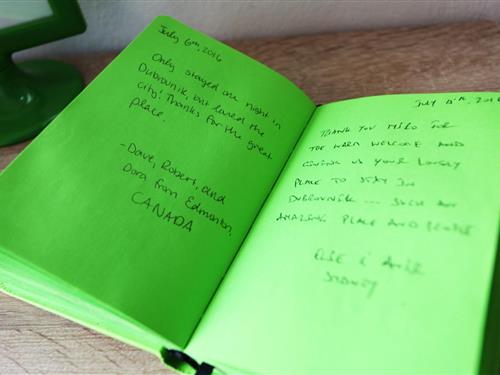 July 6th, 2016
Only stayed one night in
Dubrovnik, but loved the
city! Thanks for the great
place.
-Dave, Robert, and
Dora from Edmonton,
CANADA
JULY 2016
THANK YOU MIRO FOR
THE WARM WELCOME AND
GIVING US YOUR LOVELY
PLACE TO STAY IN
DUBROVNIK ... SUCH AN
AMAZING PLACE AND PEOPLE
SYDNEY